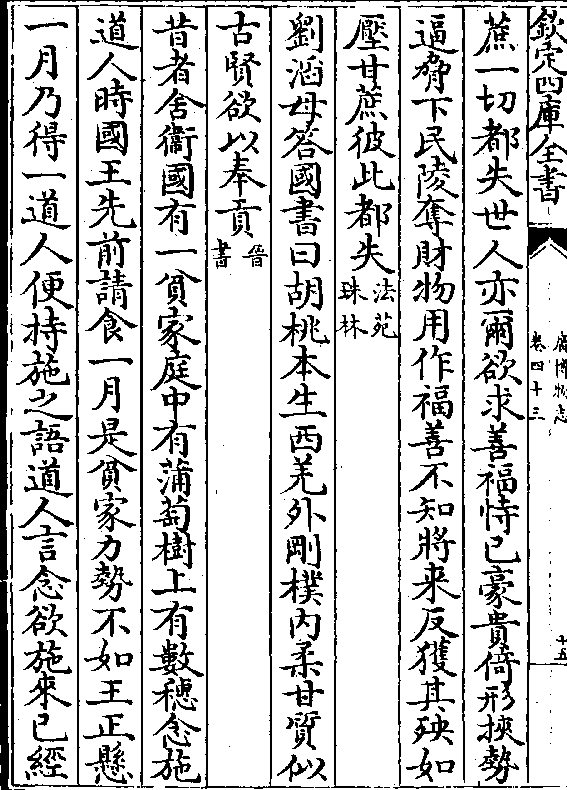 欽定四庫全書
廣博物志
卷四十三
十五
蔗一切都失世人亦爾欲求善福恃己豪貴倚形挾勢
逼脅下民陵奪財物用作福善不知將来反獲其殃如
壓甘蔗彼此都失法苑珠林
劉滔母答國書曰胡桃本生西羌外剛樸内柔甘質似
古賢欲以奉貢晉書
昔者舍衛國有一貧家庭中有蒲萄樹上有數穗念施
道人時國王先前請食一月是貧家力勢不如王正懸
一月乃得一道人便持施之語道人言念欲施來已經